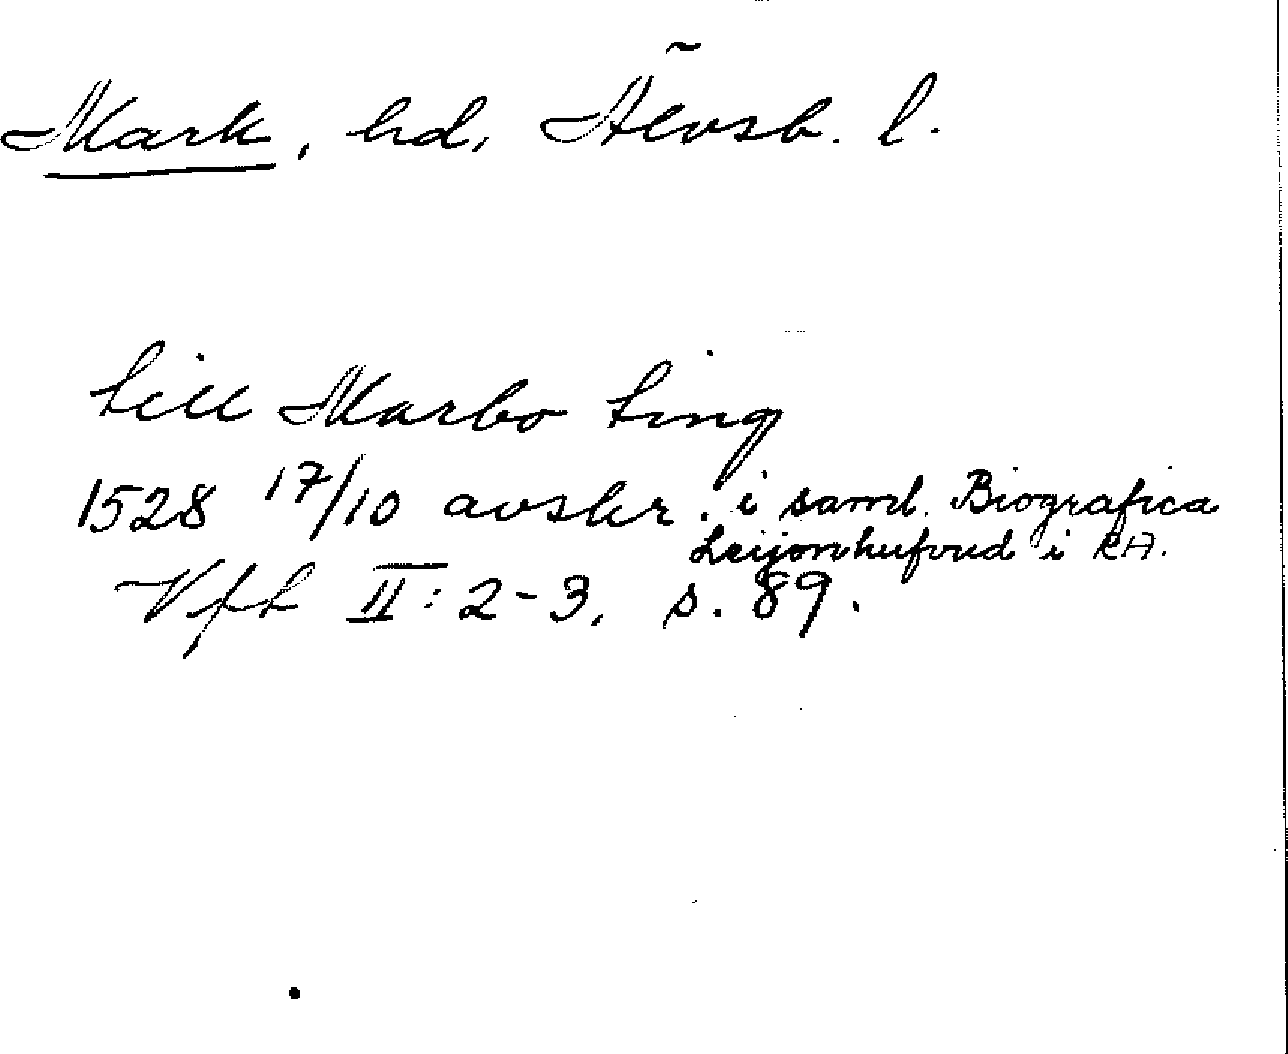 Mark, hd, Älvsb. l.
till Marbo ting
1528 17/10 avskr. i saml. Biografica
Leijonhufvud i RA.
VFT II: 2-3, s. 89.